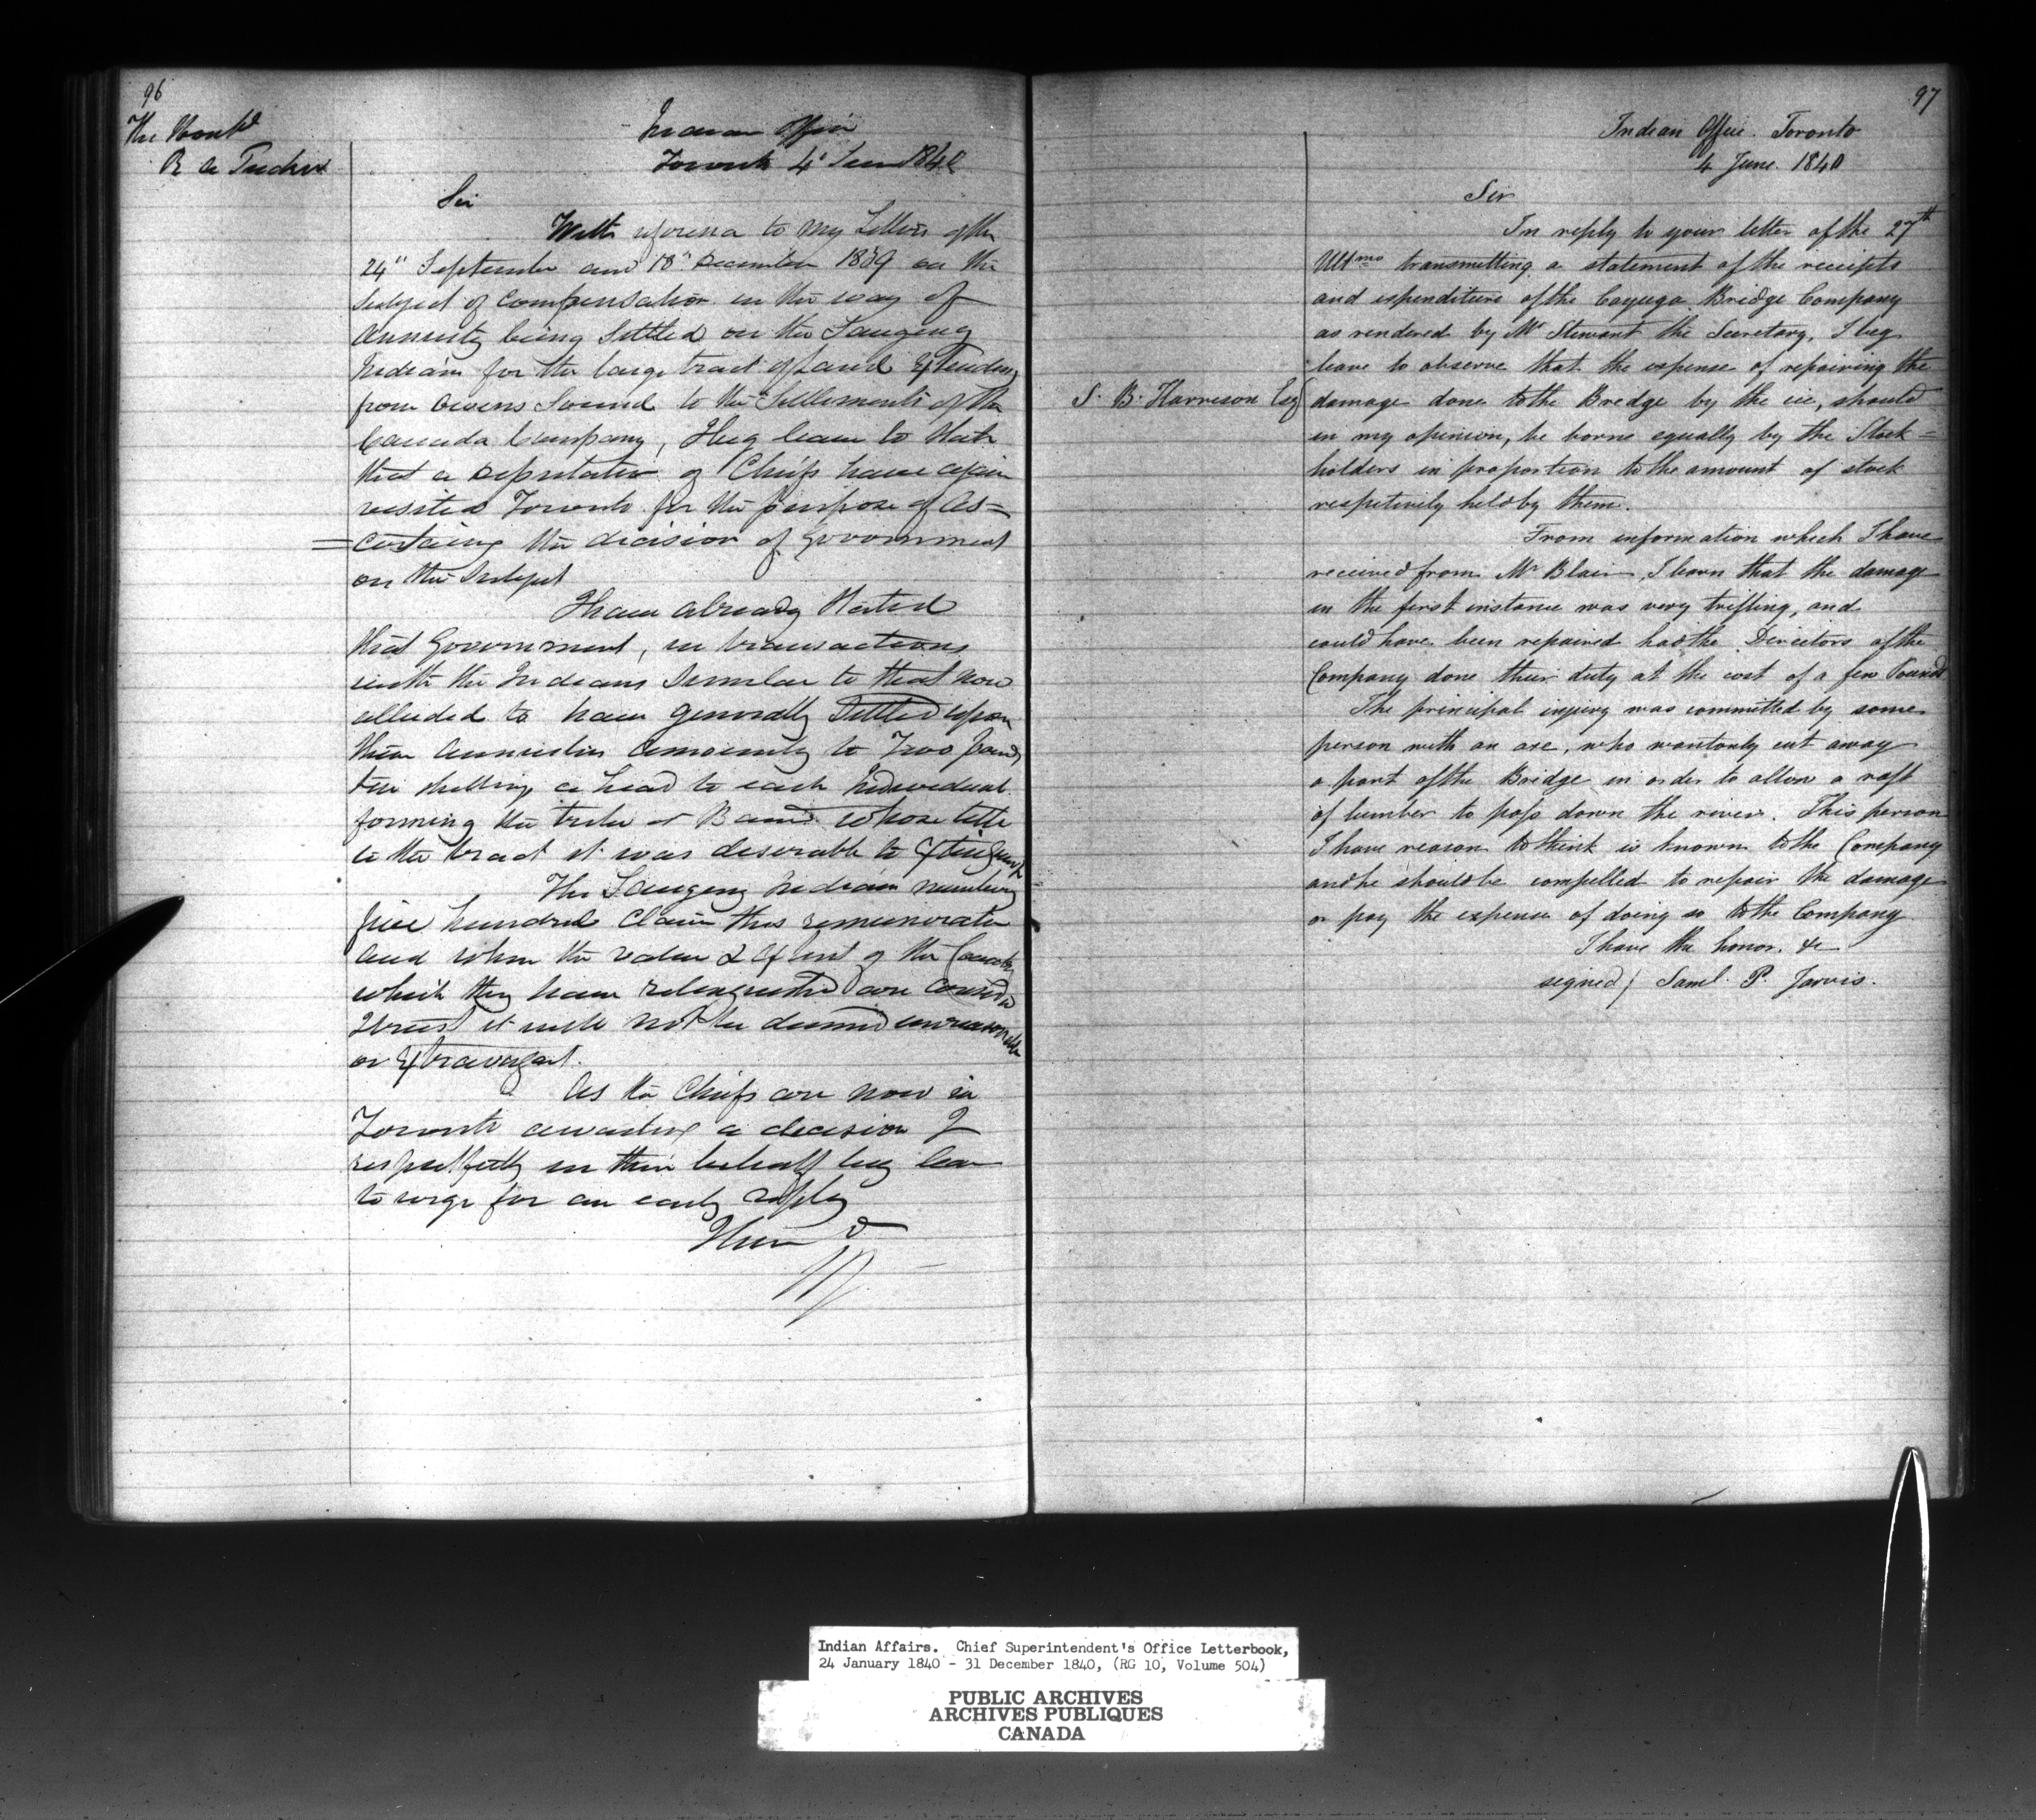 96
The Honble
R A Tucker
Indian Office
Toronto 4" June 1840
Sir
With reference to my Letters of the
24" September and 18" December 1839 on the
Subject of Compensation in the way of
Annuity being Settled on the Saugeng
Indians for the large tract of Land Extending
from Owens Sound to the Settlements of the
Canada Company, I beg leave to State
that a Deputation of Chiefs have again
visited Toronto for the purpose of As=
=certaining the decision of Government
on the Subject
I have already Stated
that Government, in transactions
with the Indians Similar to that now
alluded to have generally Settled upon
them Annuities Amounting to Two pounds
ten shillings a head to each Individual
forming the tribe or Band whose title
to the tract it was desirable to Extinguish
The Saugeng Indians numbering
five hundred Claim this remuneration
And when the value & Extent of the Country
which they have relinquished are Considered
I trust it will not be deemed unreasonable
or Extravagant.
As the Chiefs are now in
Toronto awaiting a decision I
respectfully in their behalf beg leave
to urge for an early reply
I have &
97
Indian Office. Toronto
4 June. 1840
Sir
In reply to your letter of the 27th
Ultmo transmitting a statement of the receipts
and expenditure of the Cayuga Bridge Company
as rendered by Mr Stewart the Secretary, I beg
leave to observe that the expense of repairing the
S. B. Harrison Esq
damage done to the Bridge by the ice, should
in my opinion, be borne equally by the Stock=
holders in proportion to the amount of stock
respectively held by them.
From information which I have
received from Mr Blair, I learn that the damage
in the first instance was very trifling, and
could have been repaired had the Directors of the
Company done their duty at the cost of a few Pounds
The principal injury was committed by some
person with an axe, who wantonly cut away
a part of the Bridge in order to allow a raft
of lumber to pass down the river. This person
I have reason to think is known to the Company
and he should be compelled to repair the damage
or pay the expense of doing so to the Company
I have the honor. &c
signed/ Saml. P. Jarvis.
Indian Affairs. Chief Superintendent's Office Letterbook,
24 January 1840 - 31 December 1840, (RG 10, Volume 504)
PUBLIC ARCHIVES
ARCHIVES PUBLIQUES
CANADA